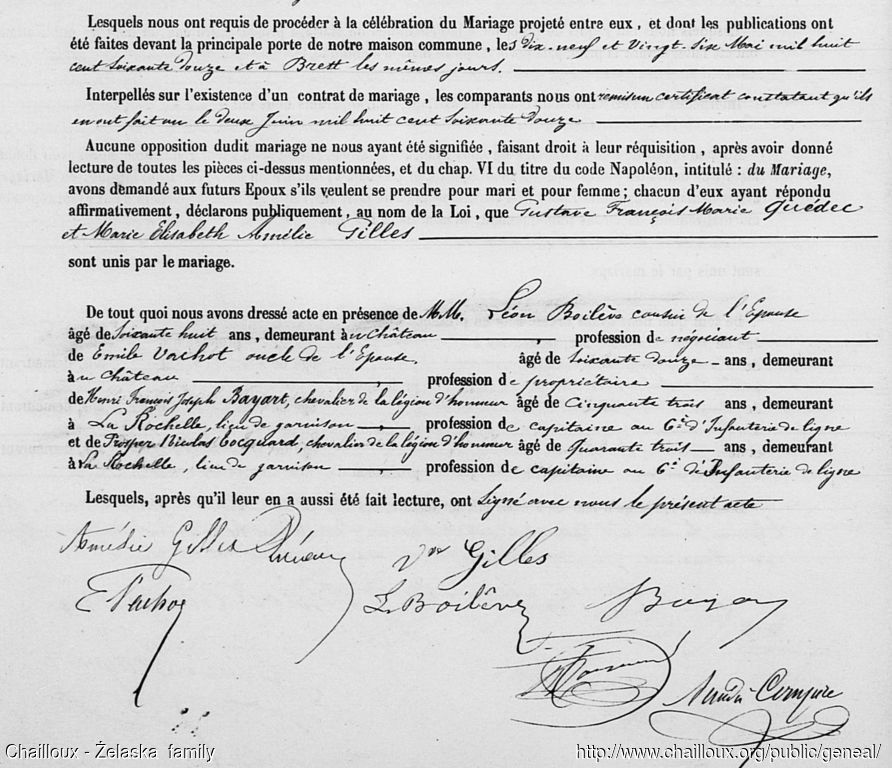 Lesquels nous ont requis de procéder à la célébration du Mariage projeté entre eux, et dont les publications ont
été faites devant la principale porte de notre maison commune, les dix-neuf et Vingt-Six Mai mil huit
cent soixante douze et à Brest les mêmes jours.
Interpellés sur l'existence d'un contrat de mariage, les comparants nous ont remis un certificat constatant qu'ils
en ont fait un le deux Juin mil huit cent soixante douze
Aucune opposition dudit mariage ne nous ayant été signifiée, faisant droit à leur réquisition, après avoir donné
lecture de toutes les pièces ci-dessus mentionnées, et du chap. VI du titre du code Napoléon, intitulé : du Mariage,
avons demandé aux futurs Epoux s'ils veulent se prendre pour mari et pour femme; chacun d'eux ayant répondu
affirmativement, déclarons publiquement, au nom de la Loi, que Gustave François Marie Quédec
et Marie Elisabeth Amélie Gilles
sont unis par le mariage.
De tout quoi nous avons dressé acte en présence de M.M. Léon Boilève cousin de l'Epouse
âgé de Soixante huit ans, demeurant à u Château, profession de négociant
de Emile Vachot oncle de l'Epouse. âgé de soixante douze ans, demeurant
à u Château, profession de propriétaire
de Henri François Joseph Bayart, chevalier de la légion d'honneur âgé de Cinquante trois ans, demeurant
à La Rochelle, lieu de garnison, profession de capitaine au 6e d'Infanterie de ligne
et de Prosper Nicolas Cocquard, chevalier de la légion d'honneur âgé de Quarante trois ans, demeurant
à La Rochelle, lieu de garnison, profession de capitaine au 6e d'Infanterie de ligne
Lesquels, après qu'il leur en a aussi été fait lecture, ont Signé avec nous le présent acte
Amélie Gilles Vve Gilles
L. Boilève
Chailloux - Želaska family http://www.chailloux.org/public/geneal/